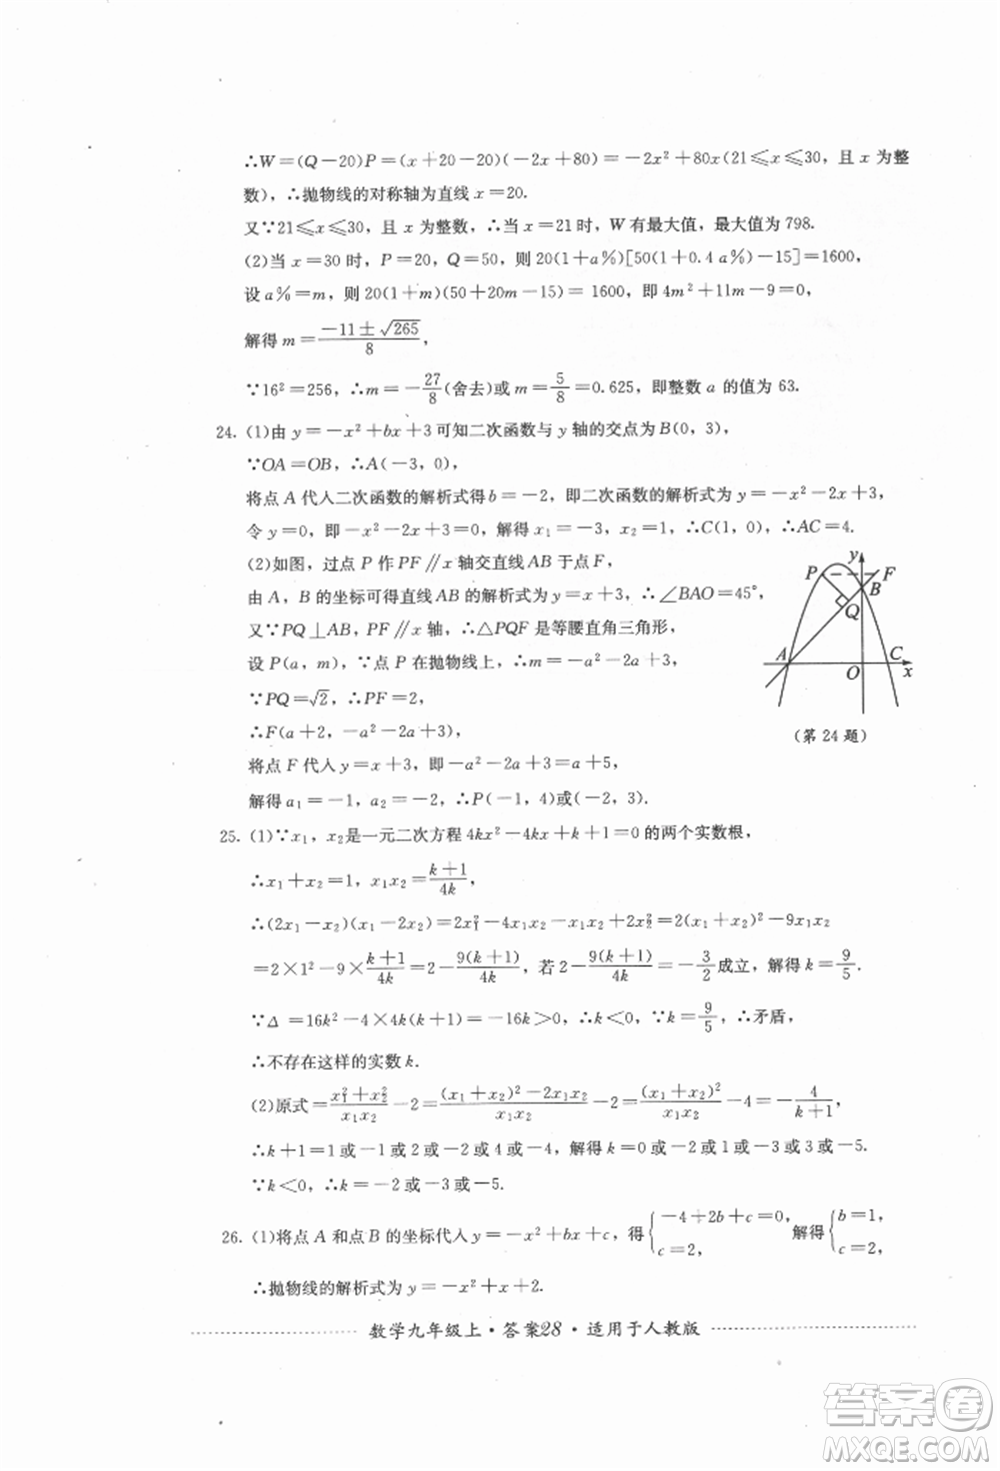 ∴W=(Q-20)P=(x+20-20)(-2x+80)=-2x²+80x(21≤x≤30,且 x 为整
数),∴抛物线的对称轴为直线 x=20.
又∵21≤x≤30,且 x 为整数,∴当 x=21时,W 有最大值,最大值为 798.
(2)当 x=30 时,P=20,Q=50,则 20(1+a%)[50(1+0.4 a%)-15]=1600,
设 a%=m,则 20(1+m)(50+20m-15)=1600,即 4m²+11m-9=0,
解得 m=(-11±√265)/8,
∵16²=256,∴m=-27/8(舍去)或 m=5/8=0.625,即整数 a 的值为 63.
24. (1)由 y=-x²+bx+3可知二次函数与 y 轴的交点为B(0,3),
∵OA=OB,∴A(-3,0),
将点 A 代人二次函数的解析式得 b=-2,即二次函数的解析式为 y=-x²-2x+3,
令 y=0,即-x²-2x+3=0,解得 x₁=-3,x₂=1,∴C(1,0),∴AC=4.
(2)如图,过点 P 作 PF∥x 轴交直线 AB 于点 F,
由 A,B 的坐标可得直线AB 的解析式为 y=x+3,∴∠BAO=45°,
又∵PQ⊥AB,PF∥x 轴,∴△PQF 是等腰直角三角形,
设 P(a,m),∵点 P 在抛物线上,∴m=-a²-2a+3,
∵PQ=√2,∴PF=2,
∴F(a+2,-a²-2a+3),
将点 F 代人 y=x+3,即-a²-2a+3=a+5,
解得 a₁=-1,a₂=-2,∴P(-1,4)或(-2,3).
y
P
F
B
Q
A
O
C
x
(第 24 题)
25. (1)∵x₁,x₂是一元二次方程 4kx²-4kx+k+1=0 的两个实数根,
∴x₁+x₂=1,x₁x₂=(k+1)/4k,
∴(2x₁-x₂)(x₁-2x₂)=2x₁²-4x₁x₂-x₁x₂+2x₂²=2(x₁+x₂)²-9x₁x₂
=2×1²-9×(k+1)/4k=2-9(k+1)/4k,若 2-9(k+1)/4k=-3/2成立,解得 k=9/5.
∵Δ=16k²-4×4k(k+1)=-16k>0,∴k<0,∵k=9/5,∴矛盾,
∴不存在这样的实数 k.
(2)原式=(x₁²+x₂²)/x₁x₂-2=((x₁+x₂)²-2x₁x₂)/x₁x₂-2=(x₁+x₂)²/x₁x₂-4=-4/(k+1),
∴k+1=1或-1或2或-2或4或-4,解得 k=0或-2或1或-3或3或-5.
∵k<0,∴k=-2或-3或-5.
26. (1)将点 A 和点B 的坐标代人 y=-x²+bx+c,得{-4+2b+c=0, c=2, 解得{b=1, c=2,
∴抛物线的解析式为 y=-x²+x+2.
数学九年级上·答案28·适用于人教版
答案卷
MXQE.COM